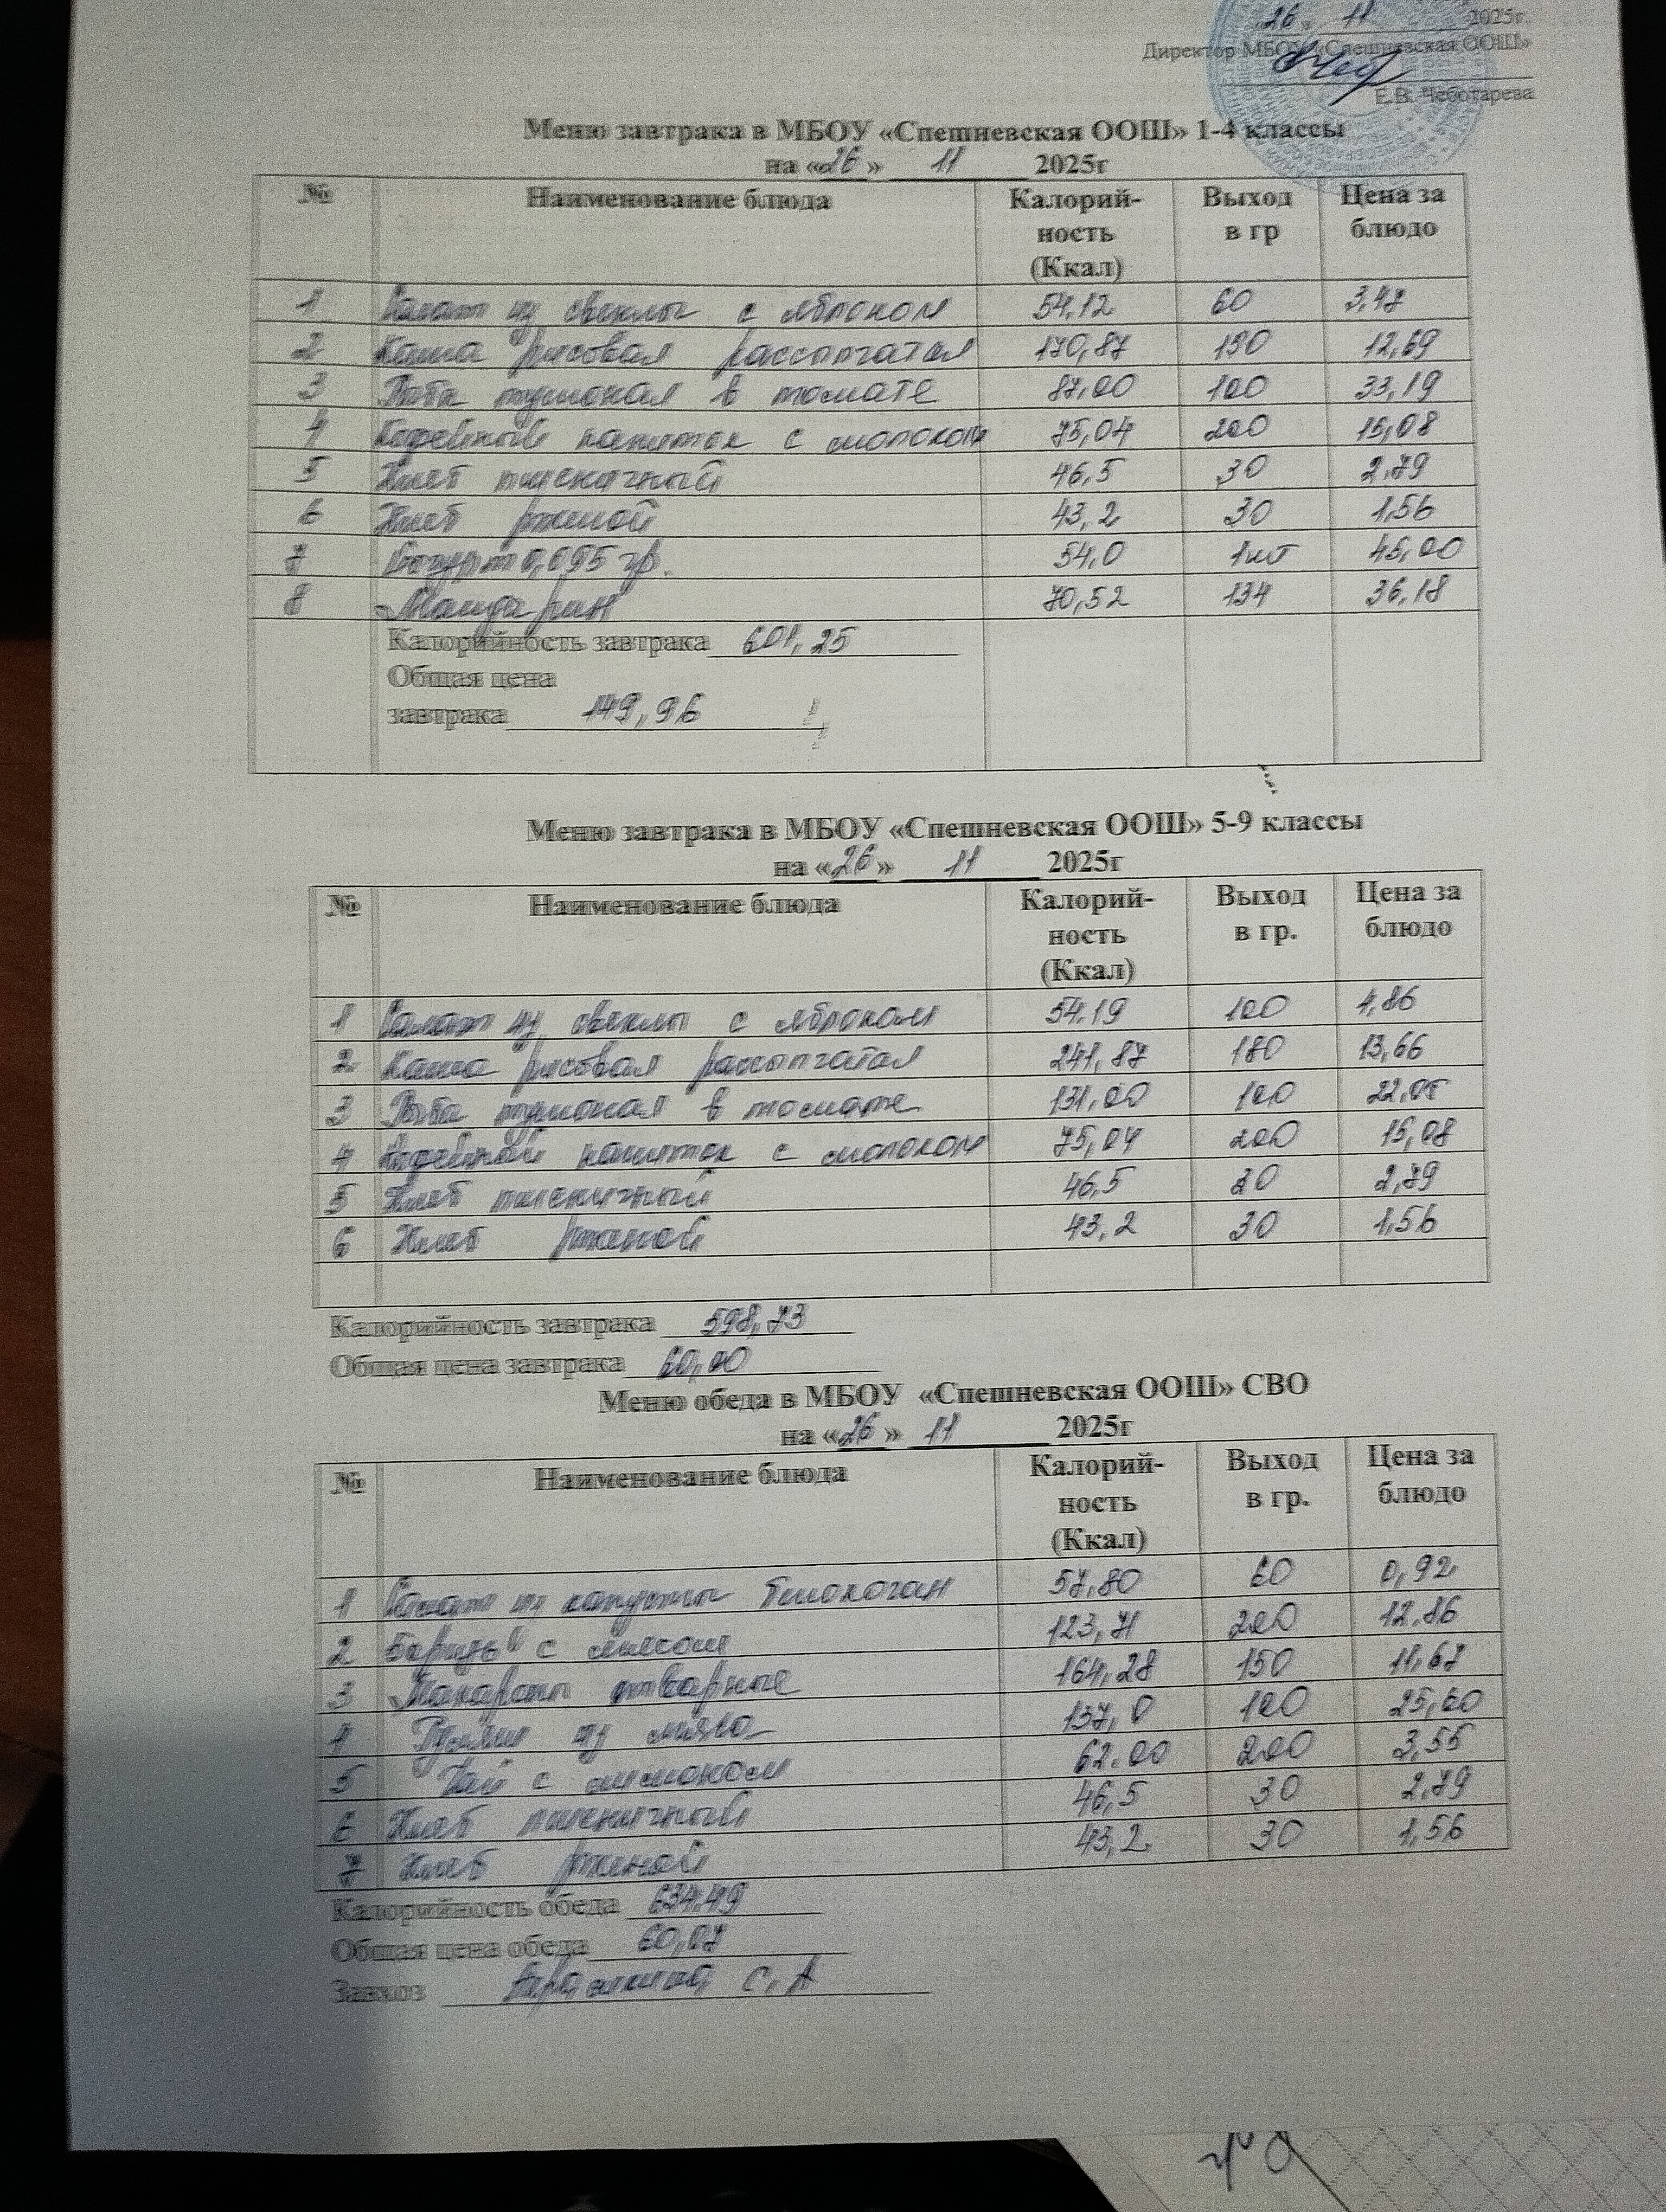 «26» 11 2025г.
Директор МБОУ «Спешневская ООШ»
Е.В. Чеботарева
Меню завтрака в МБОУ «Спешневская ООШ» 1-4 классы
на «26» 11 2025г
№ Наименование блюда Калорий-ность (Ккал) Выход в гр Цена за блюдо
1 Салат из свеклы с яблоком 54,12 60 3,47
2 Каша рисовая рассыпчатая 170,87 150 12,69
3 Рыба тушоная в томате 87,00 100 33,19
4 Кофейный напиток с молоком 75,04 200 15,08
5 Хлеб пшеничный 46,5 30 2,79
6 Хлеб ржаной 43,2 30 1,56
7 Йогурт 0,095 гр. 54,0 1шт 45,00
8 Мандарин 70,52 134 36,18
Калорийность завтрака 601,25
Общая цена
завтрака 149,96
Меню завтрака в МБОУ «Спешневская ООШ» 5-9 классы
на «26» 11 2025г
№ Наименование блюда Калорий-ность (Ккал) Выход в гр. Цена за блюдо
1 Салат из свеклы с яблоком 54,19 100 4,86
2 Каша рисовая рассыпчатая 241,87 180 13,66
3 Рыба тушоная в томате 131,00 100 22,05
4 Кофейный напиток с молоком 75,04 200 15,08
5 Хлеб пшеничный 46,5 30 2,79
6 Хлеб ржаной 43,2 30 1,56
Калорийность завтрака 598,73
Общая цена завтрака 60,00
Меню обеда в МБОУ «Спешневская ООШ» СВО
на «26» 11 2025г
№ Наименование блюда Калорий-ность (Ккал) Выход в гр. Цена за блюдо
1 Салат из капусты белокочан 57,80 60 0,92
2 Борщ с мясом 123,71 200 12,86
3 Макароны отварные 164,28 150 11,67
4 из мяса 137,0 100 25,60
5 Чай с лимоном 62.00 200 3,55
6 Хлеб пшеничный 46,5 30 2,79
7 Хлеб ржаной 43,2 30 1,56
Калорийность обеда 634.49
Общая цена обеда 60,07
Завхоз С.А